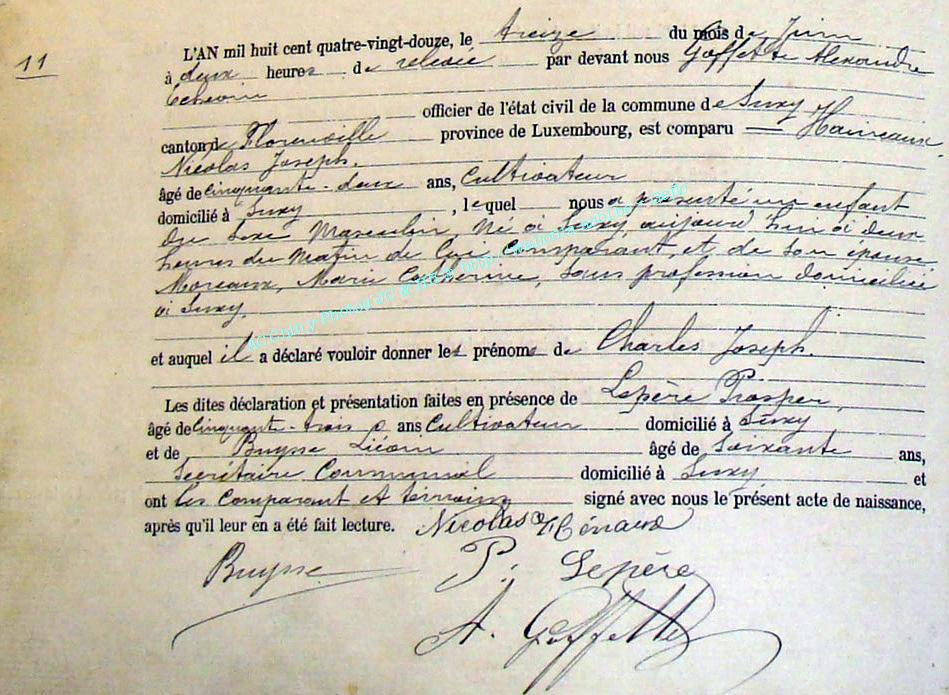 11
L'AN mil huit cent quatre-vingt-douze, le treize du mois de Juin
à deux heures de relevée par devant nous Goffette Alexandre
Echevin
officier de l'état civil de la commune de Suxy
canton de Florenville province de Luxembourg, est comparu — Haineaux
Nicolas Joseph.
âgé de cinquante-deux ans, Cultivateur
domicilié à Suxy, lequel nous a présenté un enfant
du sexe Masculin, né à Suxy aujourd'hui à deux
heures du matin de lui Comparant, et de son épouse
Moreaux, Marie Catherine, sans profession domiciliée
à Suxy.
et auquel il a déclaré vouloir donner les prénoms de Charles Joseph.
Les dites déclaration et présentation faites en présence de Lepère Prosper,
âgé de cinquante-trois ans Cultivateur domicilié à Suxy
et de Buysse Liévin âgé de Soixante ans,
Secrétaire Communal domicilié à Suxy et
ont les Comparant et témoins signé avec nous le présent acte de naissance,
après qu'il leur en a été fait lecture. Nicolas
Buysse P. Lepère
A. Goffette